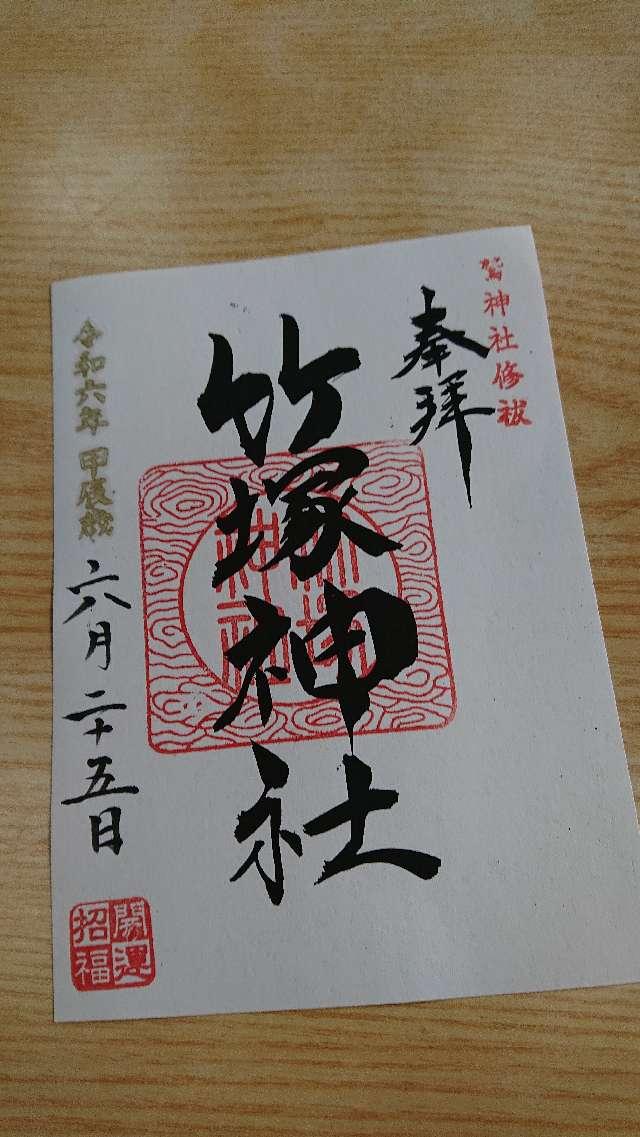 鷲神社修祓
奉拝
竹塚神社
令和六年 甲辰歳
六月二十五日
開運
招福